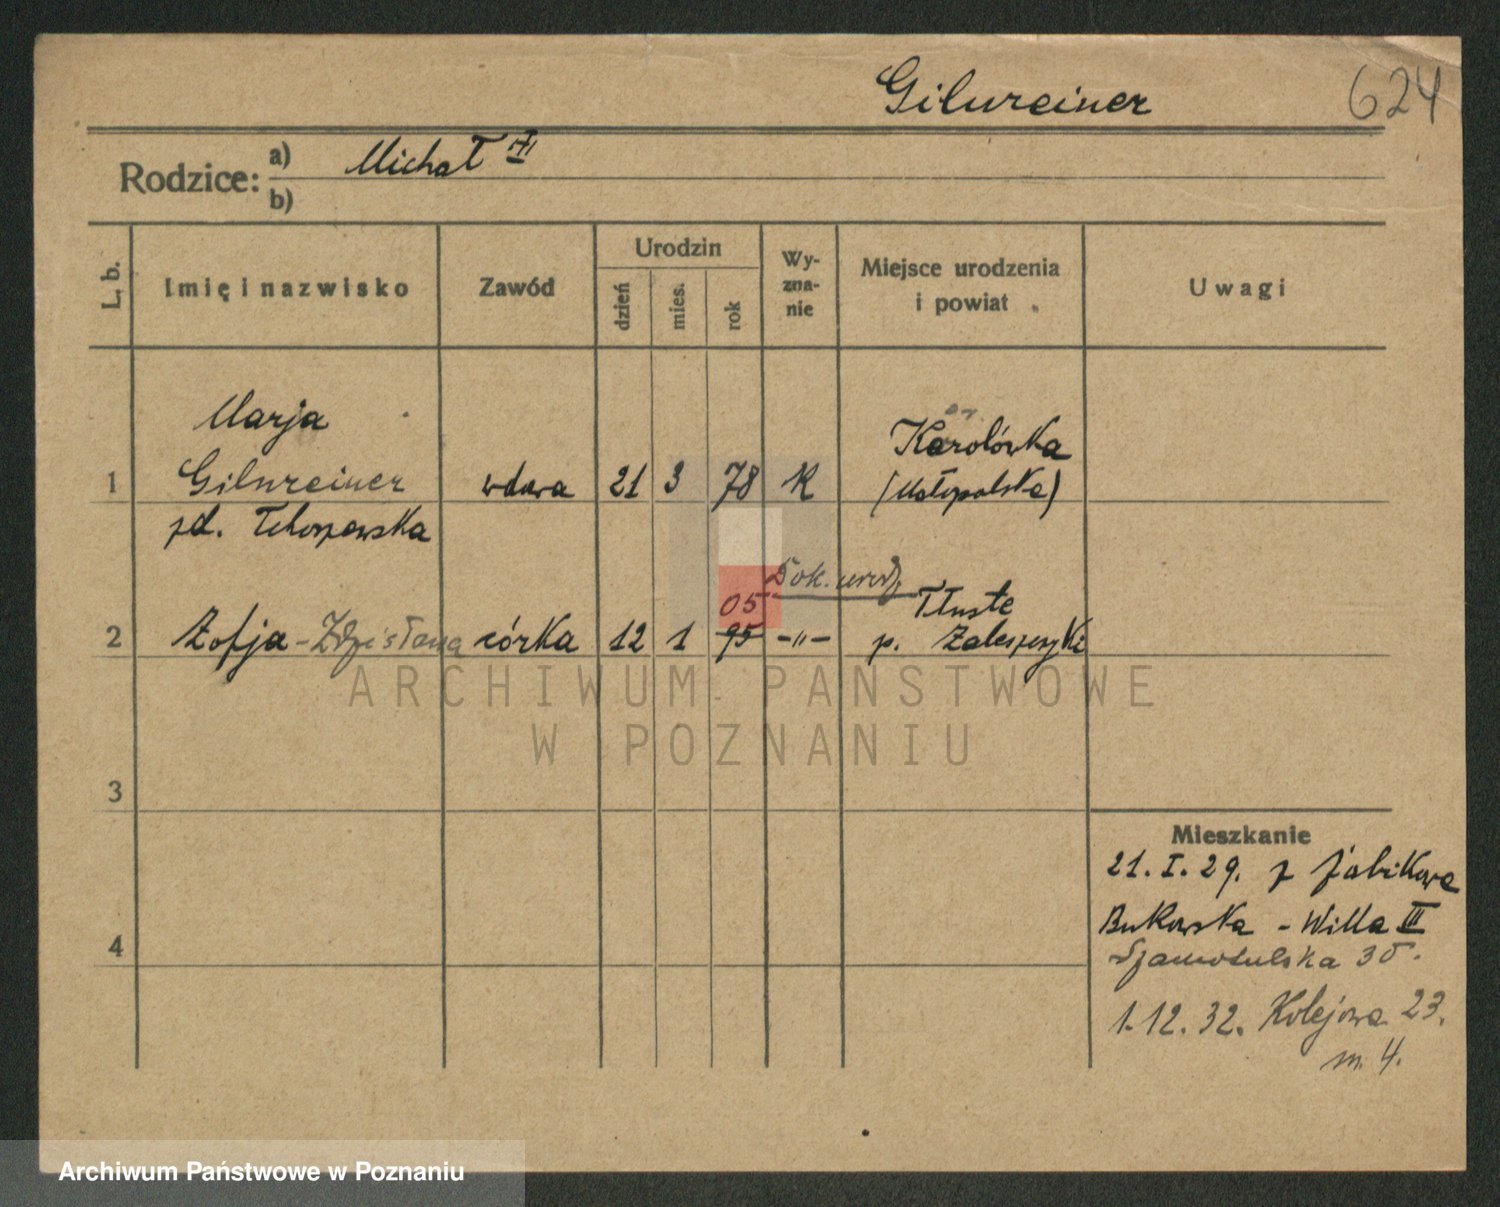 Gilureiner 624
Rodzice: a) Michał
b)
L. b. Imię i nazwisko Zawód Urodzin dzień mies. rok Wyznanie Miejsce urodzenia i powiat Uwagi
Marja
1 Gilnreiner wdowa 21 3 78 K Karolówka
(Małopolska)
zd.
Dok. urodz.
05
Tłuste
2 Zofja - Zdzisława córka 12 1 95 -"- p. Zaleszczyki
ARCHIWUM PAŃSTWOWE
W POZNANIU
3
Mieszkanie
21. I. 29. z Żabikowa
Bukowska - Willa III
4
Szamotulska 30.
1.12.32. Kolejowa 23.
m. 4.
Archiwum Państwowe w Poznaniu